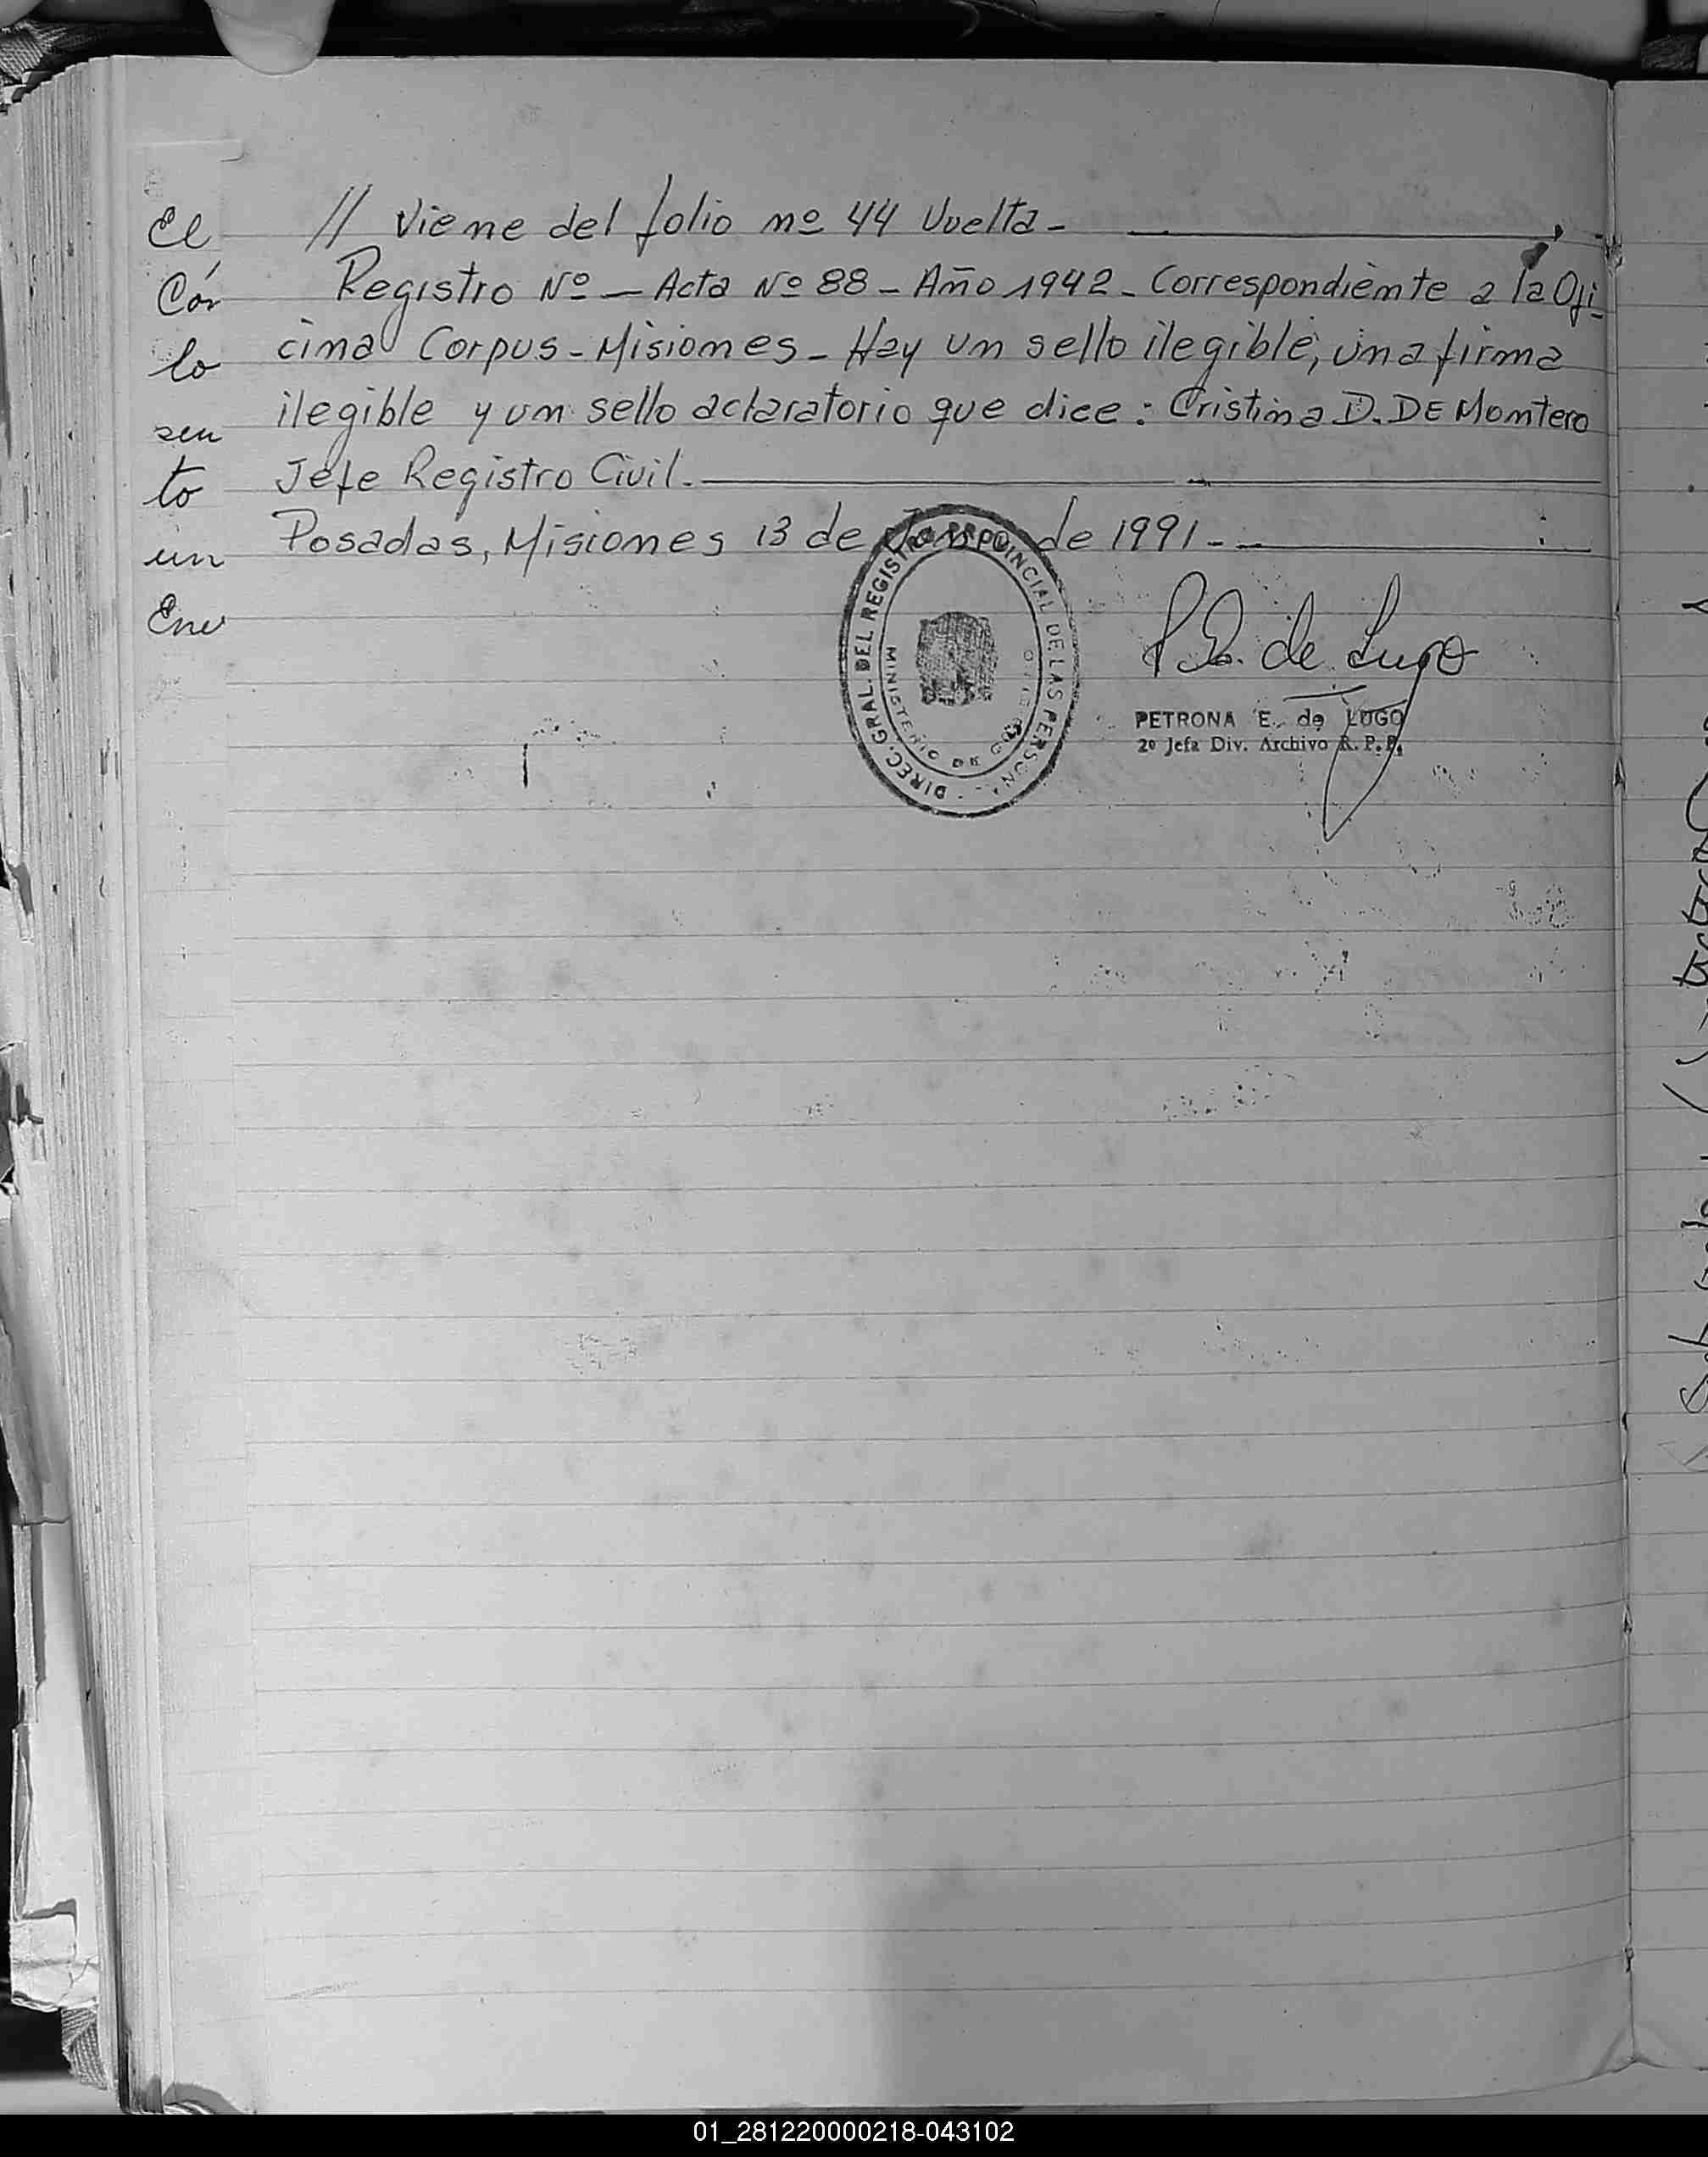 // Viene del folio nº 44 Vuelta-
Registro Nº — Acta Nº 88 - Año 1942 - Correspondiente a la Ofi
cina Corpus - Misiones - Hay un sello ilegible, una firma
ilegible y un sello aclaratorio que dice: Cristina D. DE Montero
Jefe Registro Civil.
Posadas, Misiones 13 de de 1991-
El
Cór
lo
sen
to
un
Ene
DIREC. GRAL. DEL REGISTRO PROVINCIAL DE LAS PERSONAS
MINISTERIO DE GOBIERNO
P.E. de Lugo
PETRONA E. de LUGO
2º Jefa Div. Archivo R. P. P.
01_281220000218-043102